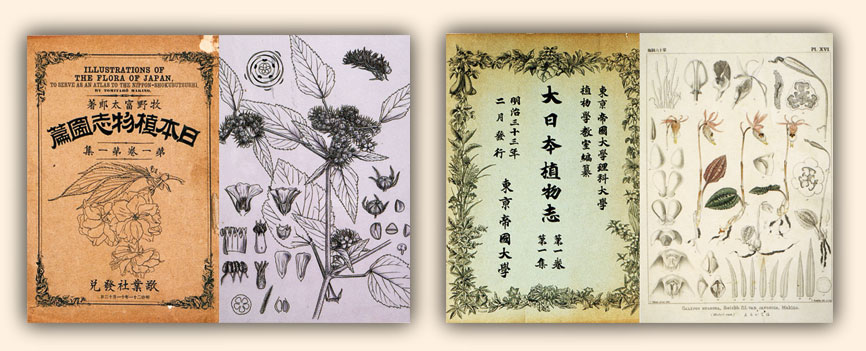 ILLUSTRATIONS OF
THE FLORA OF JAPAN,
TO SERVE AS AN ATLAS TO THE NIPPON-SHOKUBUTSUSHI.
BY TOMITARŌ MAKINO.
牧野富太郎著
日本植物志圖篇
第一卷第一集
敬業社發兌
東京帝國大學理科大學
植物學教室編纂
大日本植物志
第一卷
第一集
明治三十三年
二月發行
東京帝國大學
Pl. XVI.
Makino.